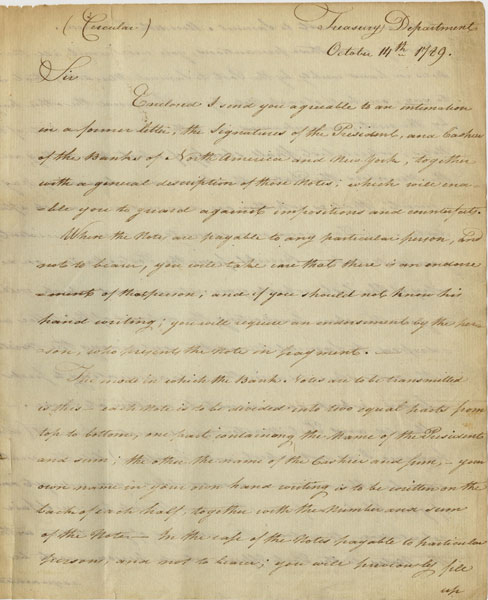 (Circular)
Treasury Department
October 14th 1789.
Sir
Enclosed I send you agreeable to an intimation
in a former letter, the Signatures of the President, and Cashier
of the Banks of North America and New York, together
with a general description of those Notes; which will ena-
-ble you to guard against impositions and counterfeits.
When the Note are payable to any particular person, and
not to bearer, you will take care that there is an endorse
-ment of that person; and if you should not know his
hand writing; you will require an endorsement by the per-
son, who presents the Note in payment.
The mode in which the Bank Notes are to be transmitted
is this — each Note is to be divided into two equal parts from
top to bottom, one part containing the Name of the President
and sum; the other the name of the Cashier and sum, — your
own name in your own hand writing is to be written on the
back of each half, together with the Number and sum
of the Note — In the case of the Notes payable to particular
persons, and not to bearer; you will previously fill
up